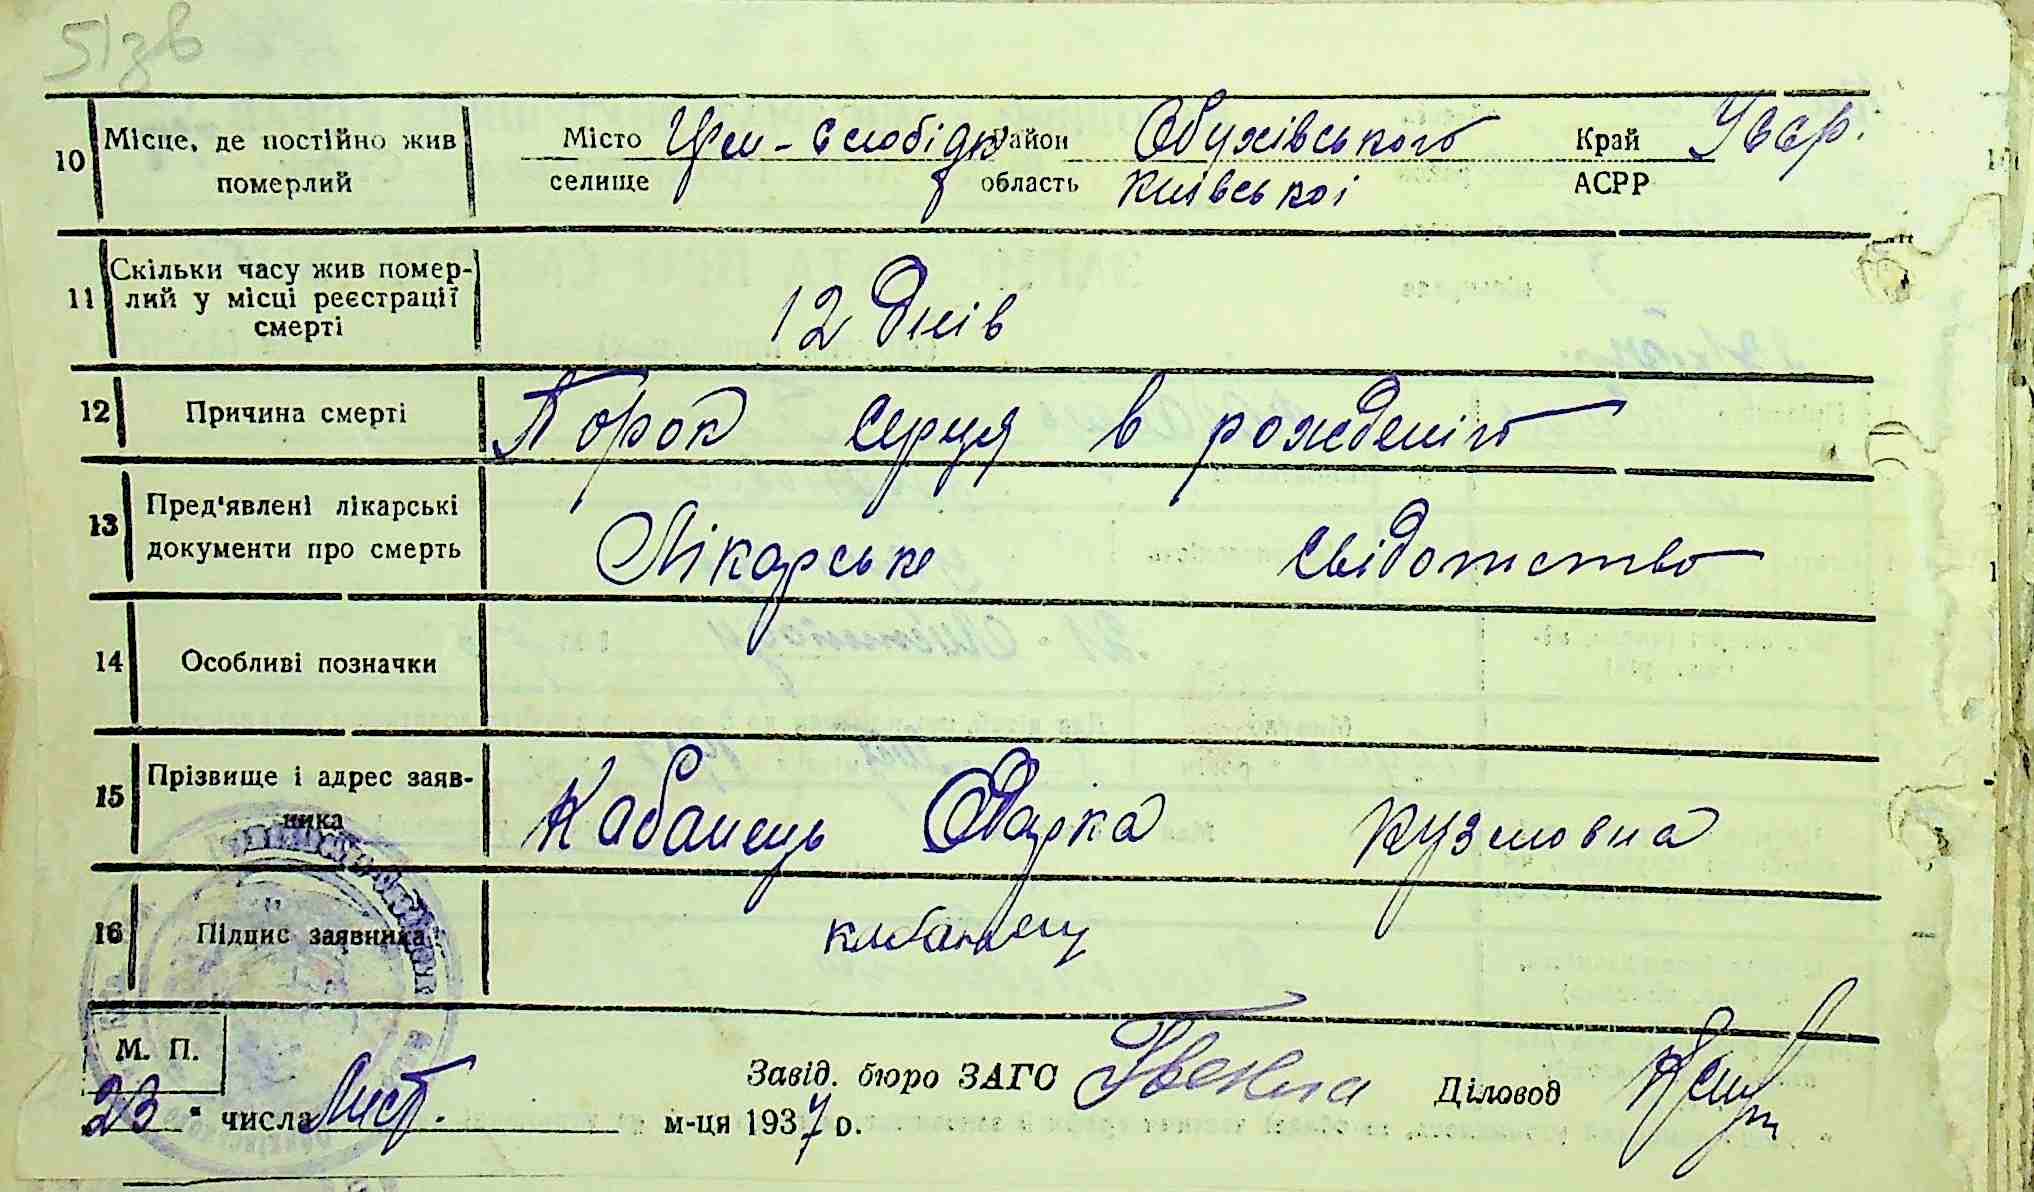 51зв
10 Місце, де постійно жив померлий Місто селище Слобідк Район Обухівського область Київської Край АСРР
11 Скільки часу жив помер-
лий у місці реєстрації
смерті
12 Днів
12 Причина смерті Порок серця в рожденій
13 Пред'явлені лікарські
документи про смерть
Лікарське свідотство
14 Особливі позначки
15 Прізвище і адрес заяв-
ника
Кабанець Одарка Кузмовна
16 Підпис заявника кабанец
М. П.
Завід. бюро ЗАГС Діловод
23 " числа Лист. м-ця 1937 р.